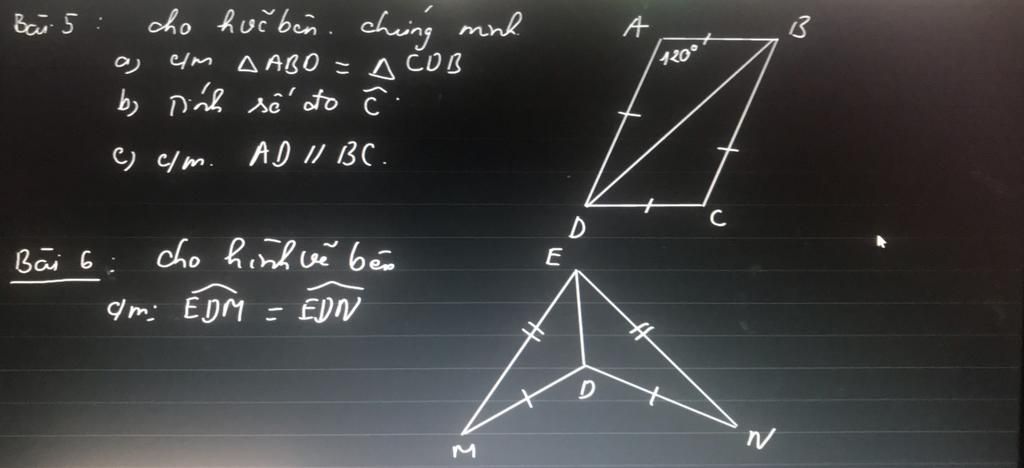 Bài 5 : cho h.vẽ bên. chứng mnh
a) c/m △ABD = △CDB
b) Tính số đo Ĉ.
c) c/m. AD // BC.
A
B
120°
D
C
Bài 6 : cho hình vẽ bên
c/m: EDM = EDN
E
D
M
N